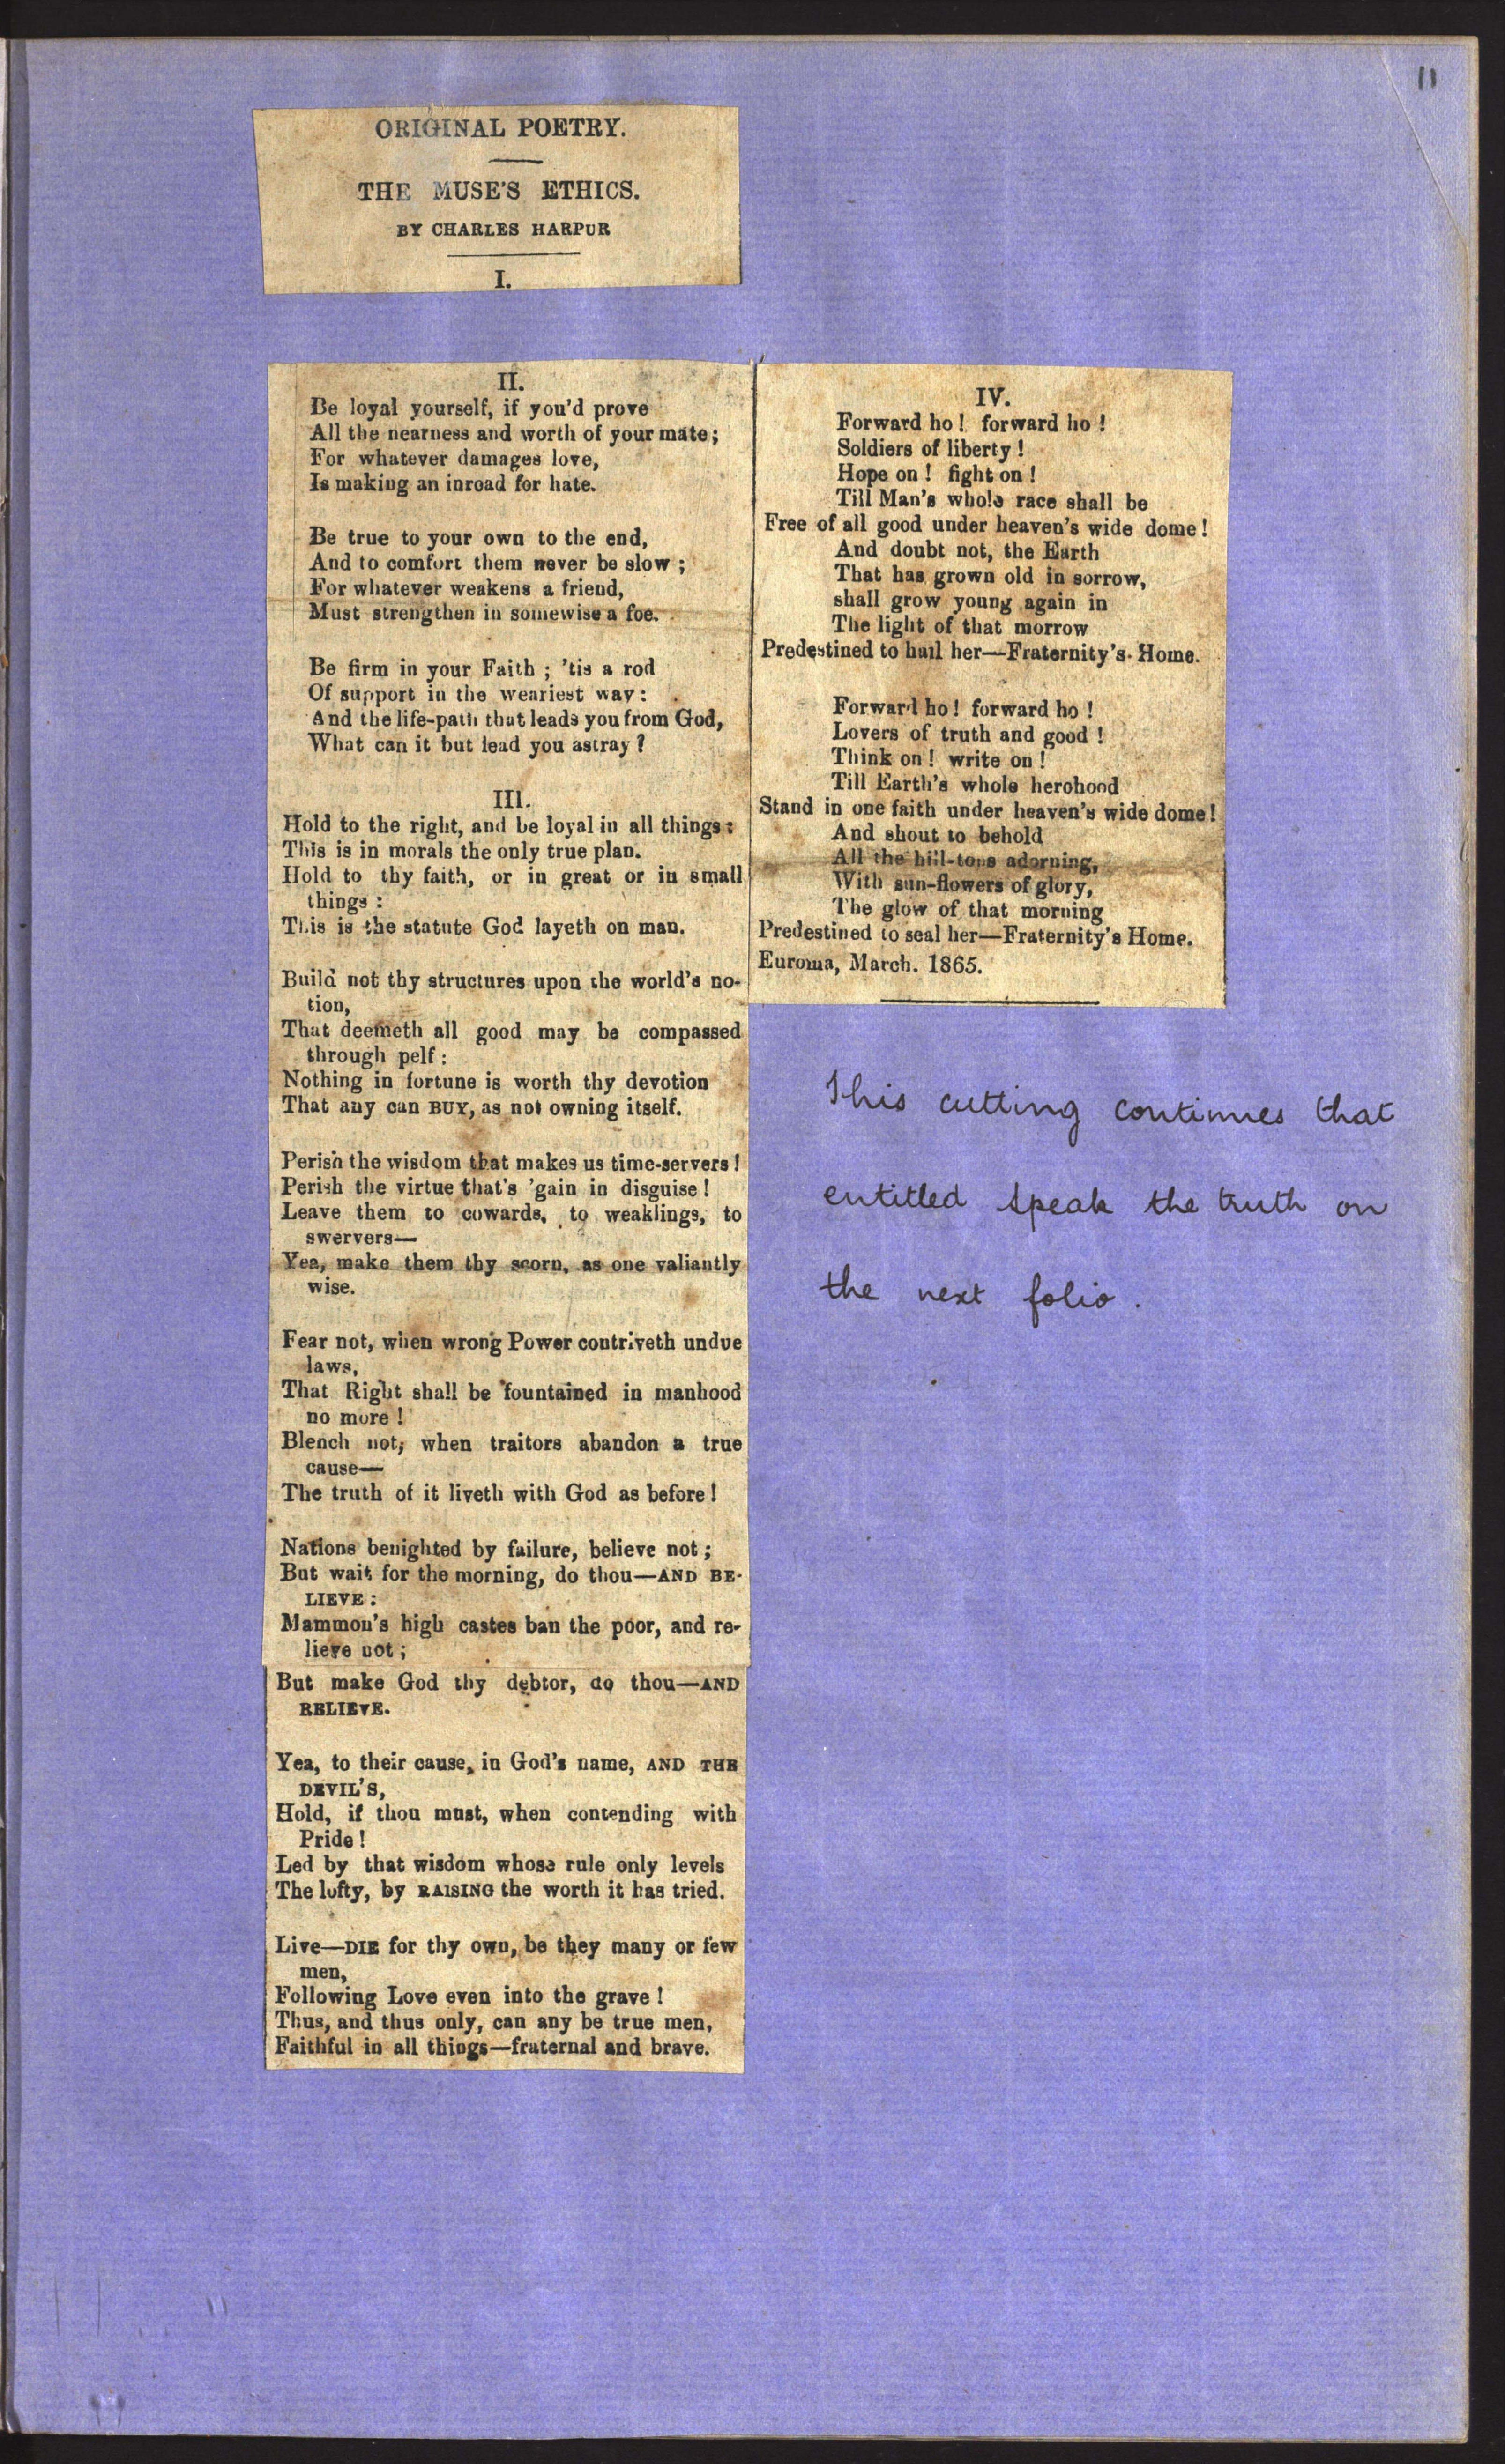 11
ORIGINAL POETRY.
THE MUSE'S ETHICS.
BY CHARLES HARPUR
I.
II.
Be loyal yourself, if you'd prove
All the nearness and worth of your mate;
For whatever damages love,
Is making an inroad for hate.
Be true to your own to the end,
And to comfort them never be slow;
For whatever weakens a friend,
Must strengthen in somewise a foe.
Be firm in your Faith; 'tis a rod
Of support in the weariest way:
And the life-path that leads you from God,
What can it but lead you astray?
III.
Hold to the right, and be loyal in all things:
This is in morals the only true plan.
Hold to thy faith, or in great or in small
things:
This is the statute God layeth on man.
Build not thy structures upon the world's no-
tion,
That deemeth all good may be compassed
through pelf:
Nothing in fortune is worth thy devotion
That any can BUY, as not owning itself.
Perish the wisdom that makes us time-servers!
Perish the virtue that's 'gain in disguise!
Leave them to cowards, to weaklings, to
swervers—
Yea, make them thy scorn, as one valiantly
wise.
Fear not, when wrong Power contriveth undue
laws,
That Right shall be fountained in manhood
no more!
Blench not, when traitors abandon a true
cause—
The truth of it liveth with God as before!
Nations benighted by failure, believe not;
But wait for the morning, do thou—AND BE-
LIEVE:
Mammon's high castes ban the poor, and re-
lieve not;
But make God thy debtor, do thou—AND
RELIEVE.
Yea, to their cause, in God's name, AND THE
DEVIL'S,
Hold, if thou must, when contending with
Pride!
Led by that wisdom whose rule only levels
The lofty, by RAISING the worth it has tried.
Live—DIE for thy own, be they many or few
men,
Following Love even into the grave!
Thus, and thus only, can any be true men,
Faithful in all things—fraternal and brave.
IV.
Forward ho! forward ho!
Soldiers of liberty!
Hope on! fight on!
Till Man's whole race shall be
Free of all good under heaven's wide dome!
And doubt not, the Earth
That has grown old in sorrow,
shall grow young again in
The light of that morrow
Predestined to hail her—Fraternity's Home.
Forward ho! forward ho!
Lovers of truth and good!
Think on! write on!
Till Earth's whole herohood
Stand in one faith under heaven's wide dome!
And shout to behold
All the hill-tops adorning,
With sun-flowers of glory,
The glow of that morning
Predestined to seal her—Fraternity's Home.
Euroma, March. 1865.
This cutting continues that
entitled Speak the truth on
the next folio.